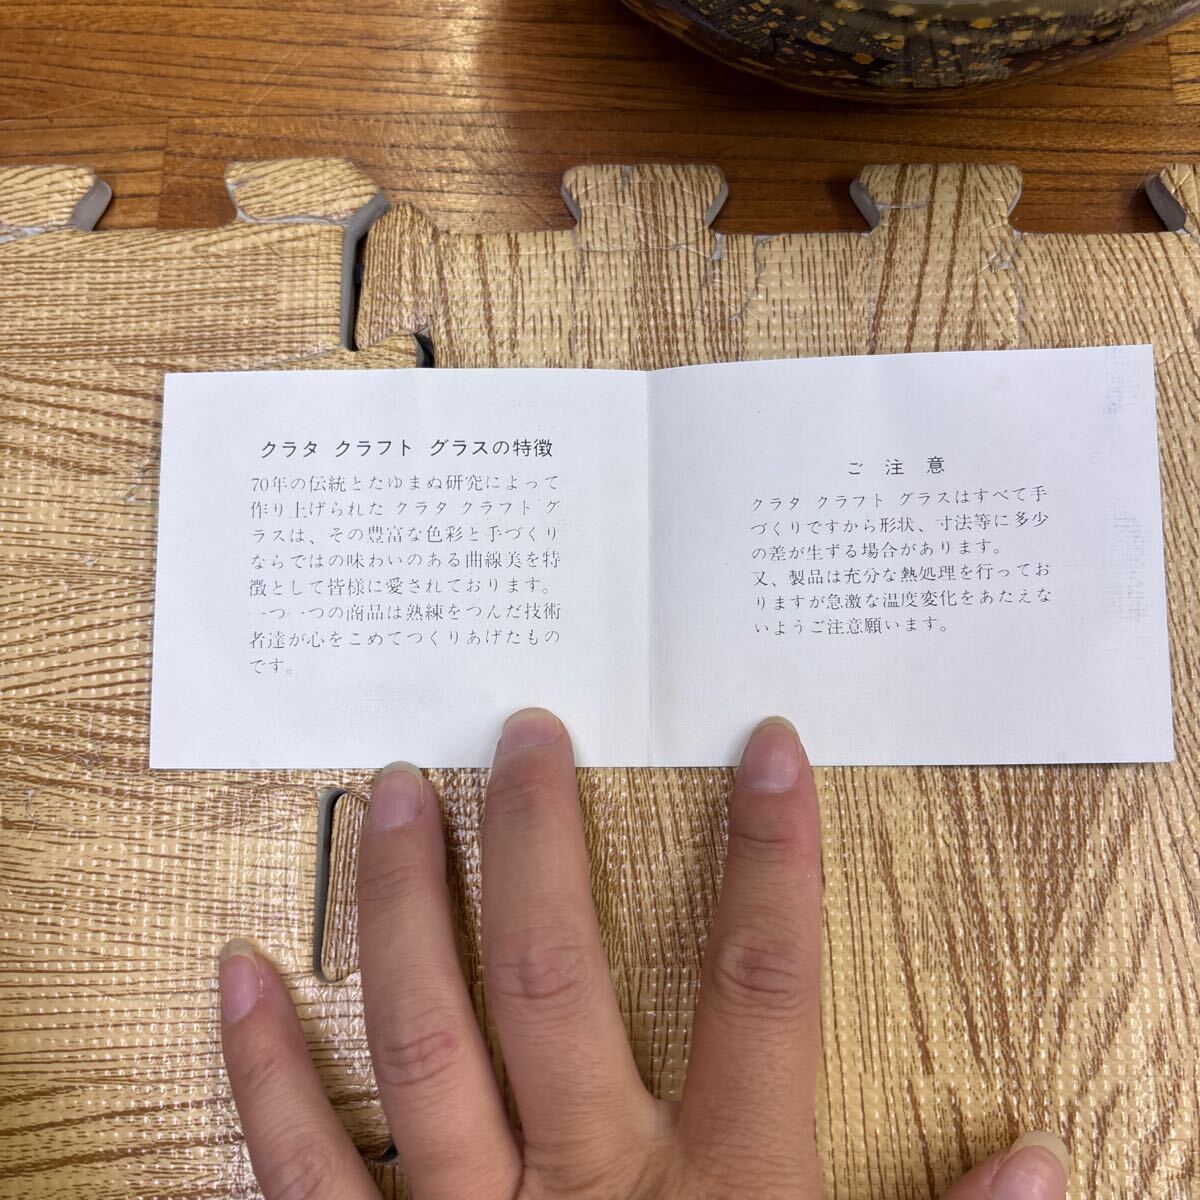 クラタ クラフト グラスの特徴
70年の伝統とたゆまぬ研究によって
作り上げられた クラタ クラフト グ
ラスは、その豊富な色彩と手づくり
ならではの味わいのある曲線美を特
徴として皆様に愛されております。
一つ一つの商品は熟練をつんだ技術
者達が心をこめてつくりあげたもの
です。
ご 注 意
クラタ クラフト グラスはすべて手
づくりですから形状、寸法等に多少
の差が生ずる場合があります。
又、製品は充分な熱処理を行ってお
りますが急激な温度変化をあたえな
いようご注意願います。